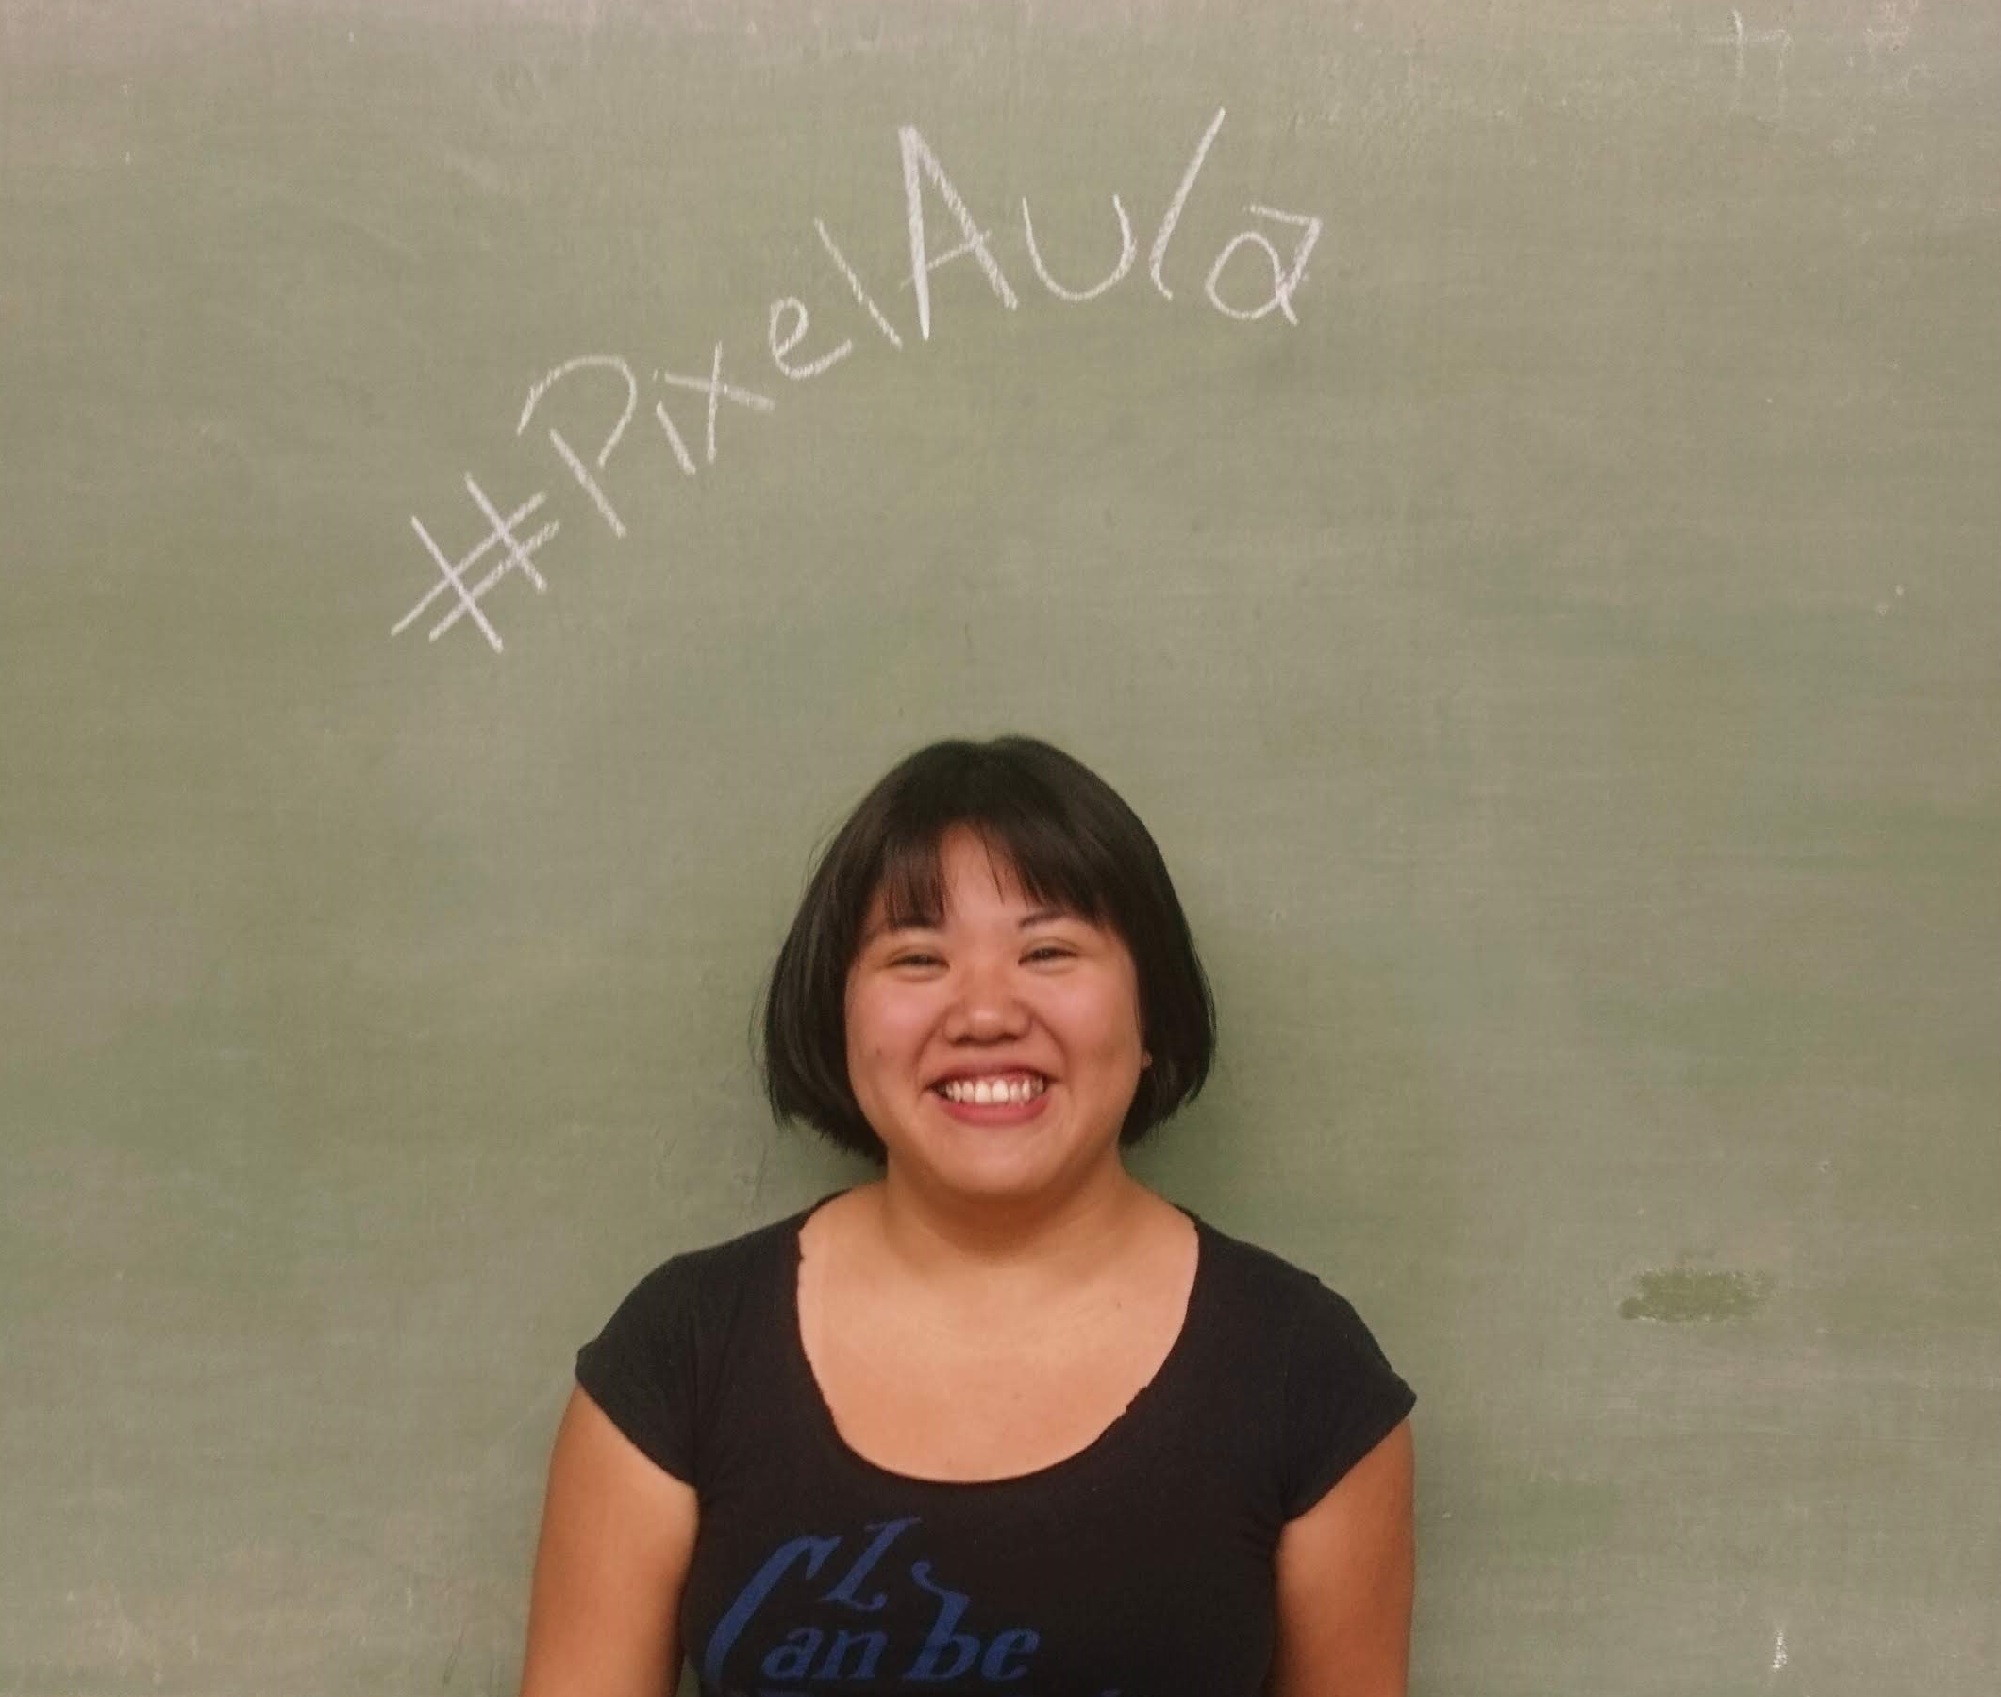 #PixelAula
I
Can be